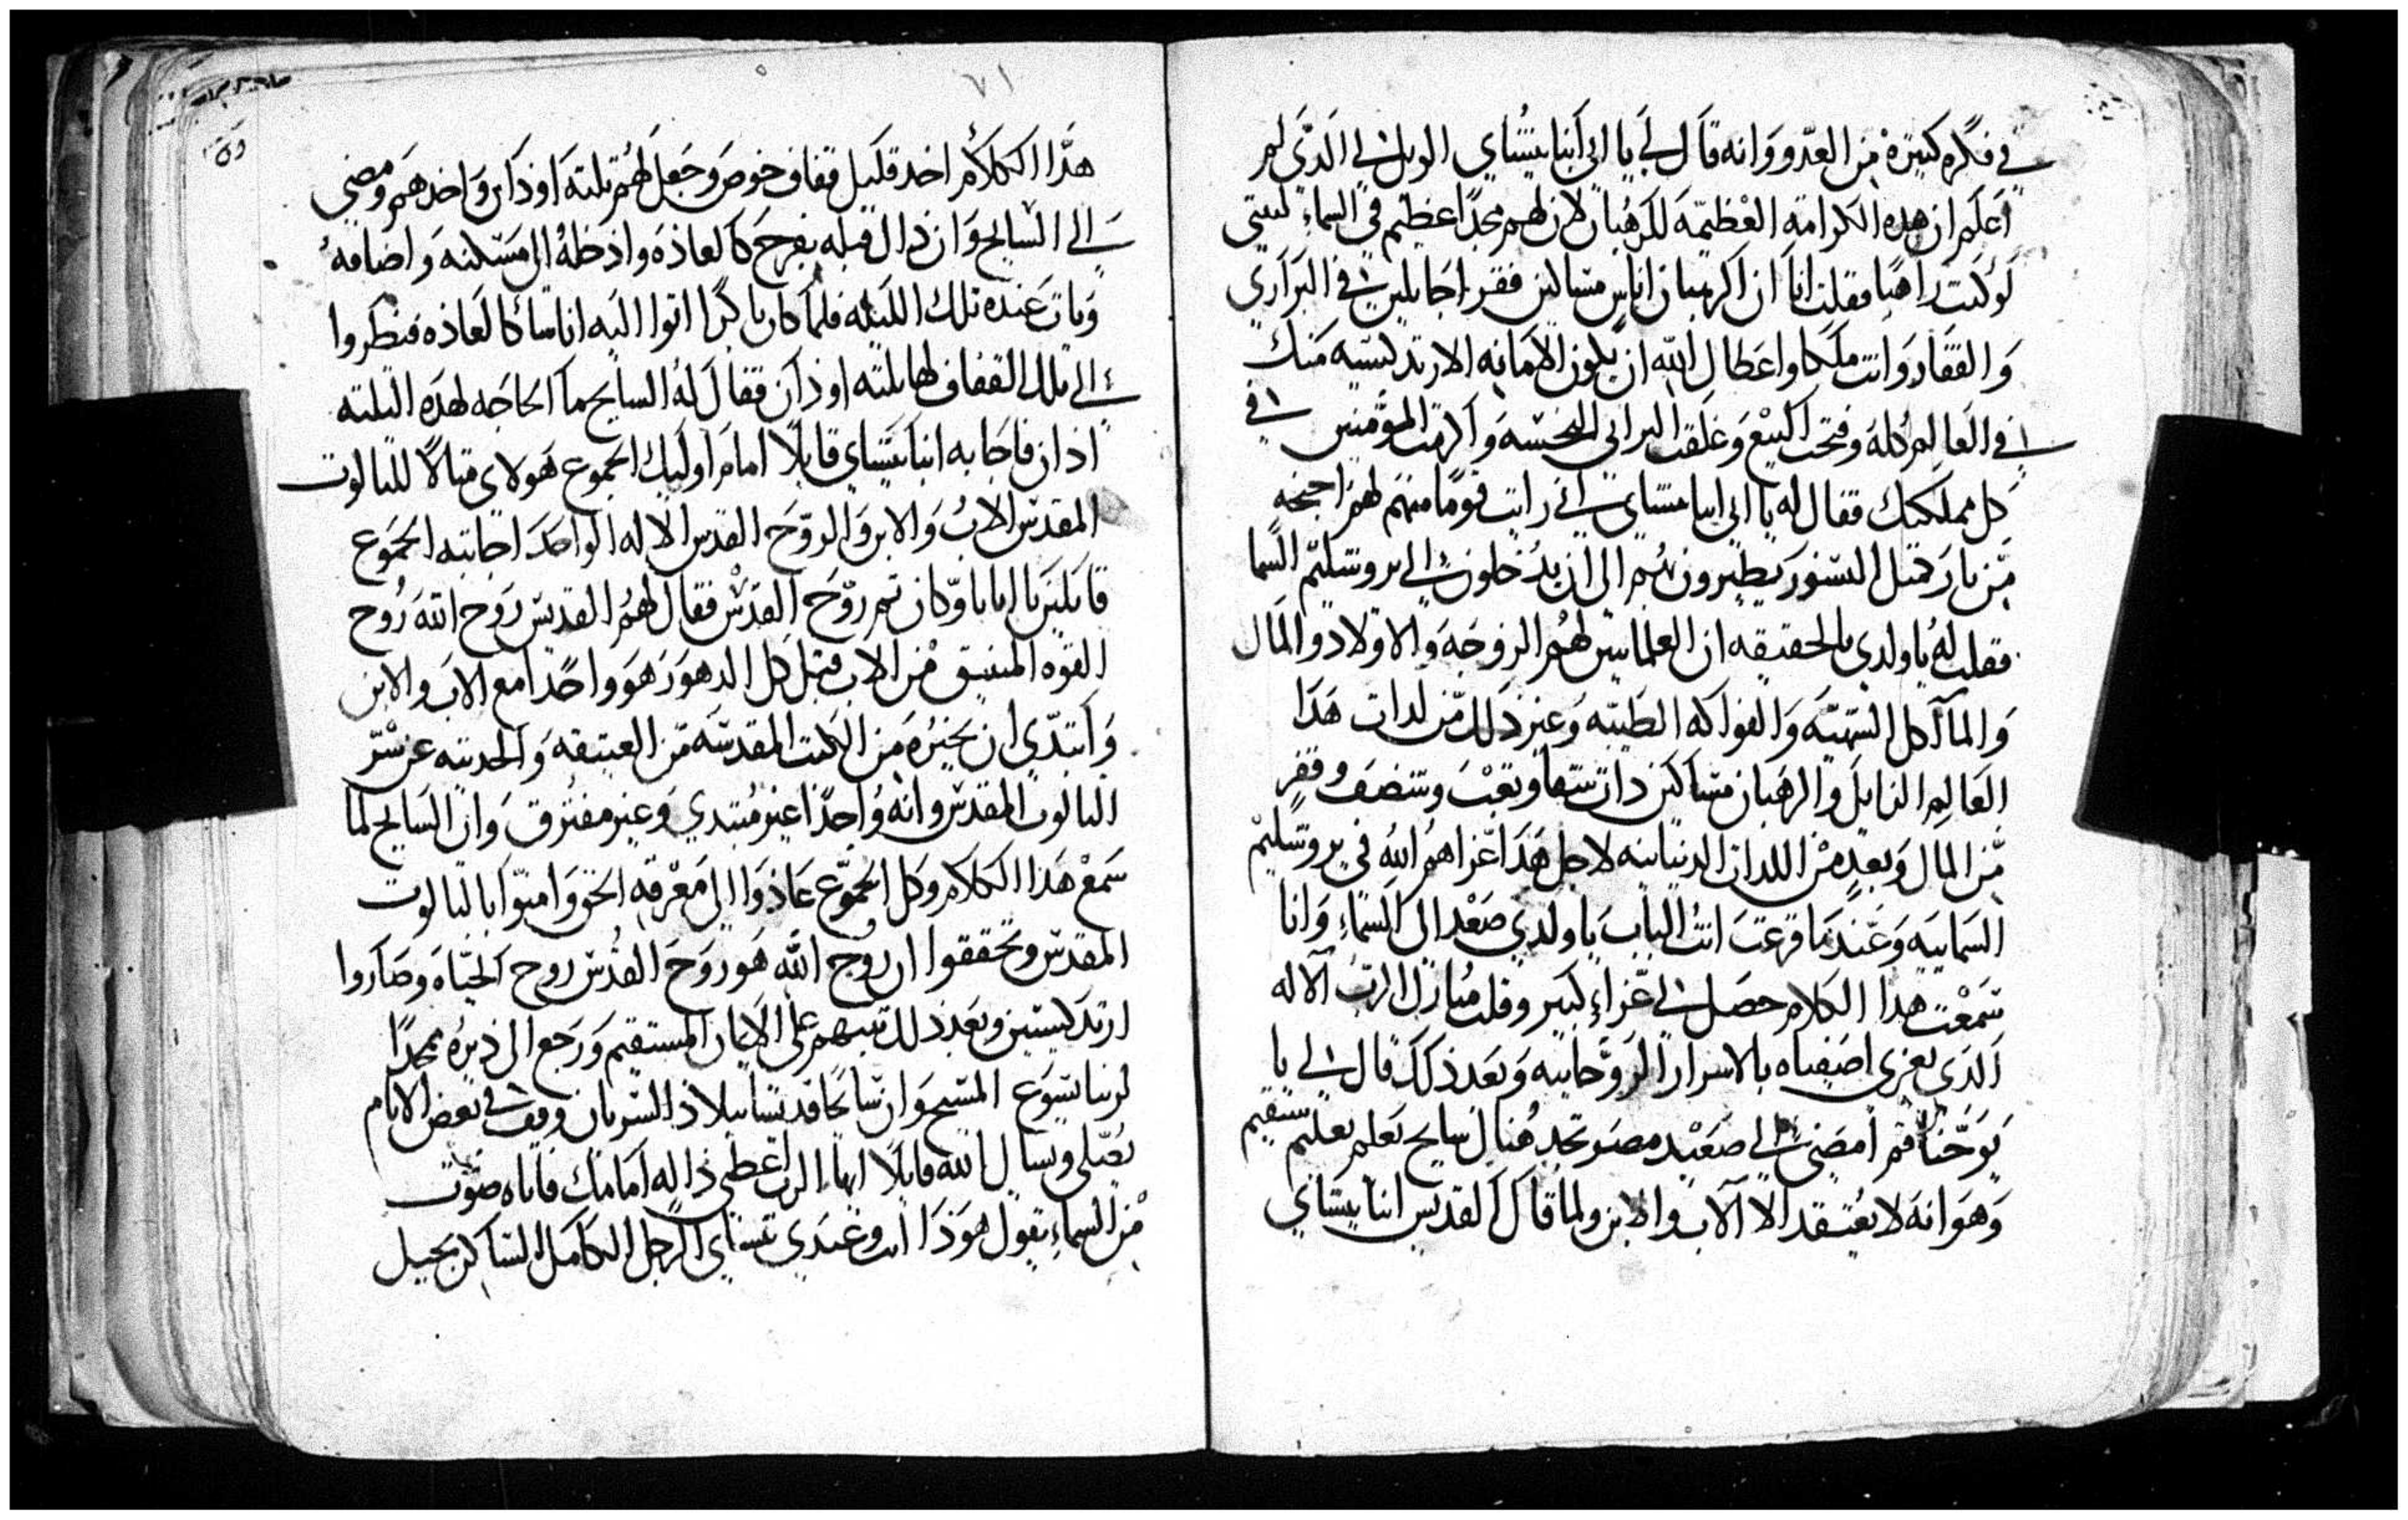 في فكره كبيره من العدو وانه قال لي يا ابي انبا بيشاي الويل لي الذي لم
اعلم ان هذه الكرامه العظيمه للرهبان لان لهم مجدا عظيم في السماء ليتني
لو كنت راهبا فقلت انا ان الرهبان اناس مساكين فقرا جايلين في البراري
والقفار وانت ملكا واعطاك الله ان يكون الامانه الارتدكسيه منك
في العالم كله وفتحت البيع وغلقت البرابي النجسه واكرمت المومنين في
كل مملكتك فقال له يا ابي انبا بيشاي اني رايت قوما منهم لهم اجنحه
من نار متل النسور يطيرون بهم الى ان يدخلون الي يروشليم السما
فقلت له يا ولدي بالحقيقه ان العلمانيين لهم الزوجه والاولاد والمال
والمآكل الشهيه والفواكه الطيبه وغير ذلك من لدات هذا
العالم الزايل والرهبان مساكين ذات شقا وتعب وتنضف وفقر
من المال وبعد من اللدات الدنيانيه لاجل هذا عزاهم الله في يروشليم
السماييه وعندما قرعت انت الباب يا ولدي صعد الى السماء وانا
سمعت هدا الكلام حصل لي عزاء كبير وقلت مبارك الرب الاله
الذي يعزي اصفياه بالاسرار الروحانيه وبعد ذلك قال لي يا
يوحنا قم امضي الي صعيد مصر تجد هناك سايح تعلم تعليم سقيم
وهو انه لا يعتقد الا الاب والابن ولما قال القديس انبا بيشاي
٧١
هذا الكلام اخد قليل قفاف خوص وجعل لهم تلته اوذان واخدهم ومضي
الي السايح وان ذاك قبله بفرح كالعاذه واذخله الى مسكنه واضافه
وبات عنده تلك الليله فلما كان باكرا اتوا اليه اناسا كالعاذه فنظروا
الي تلك القفاف لها تلته اوذان فقال له السايح ما الحاجه لهذه التلته
اذان فاجابه انبا بيشاي قايلا امام اوليك الجموع هولاي متالا للتالوت
المقدس الاب والابن والروح القدس الاله الواحد اجابته الجموع
قايلين يا ابانا وكان تم روح القدس فقال لهم القديس روح الله روح
القوه المنبتق من الاب قبل كل الدهور هو واحدا مع الاب والابن
وابتدي ان يخبره من الكتب المقدسه من العتيقه والحديته عن سر
التالوت المقدس وانه واحدا غير مبتدي وغير مفترق وان السايح لما
سمع هذا الكلام وكل الجموع عاذوا الى معرفه الحق وامنوا بالتالوت
المقدس وتحققوا ان روح الله هو روح القدس روح الحياه وصاروا
ارتدكسيين وبعد ذلك تبتهم على الايمان المستقيم ورجع الى ذيره ممجدا
لربنا يسوع المسيح وان سايحا قديسا ببلاذ السريان وقف في بعض الايام
يصلي ويسال الله قايلا ايها الرب اعطي ذاله امامك فاتاه صوت
من السماء يقول هوذا انت وعبدي بيشاي الرجل الكامل الساكن بجبل